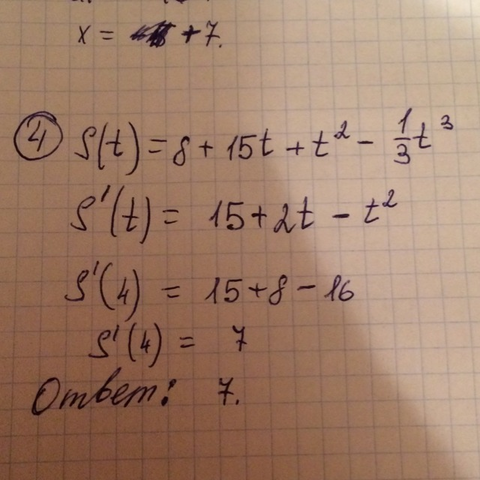 x = +7.
④ S(t) = 8 + 15t + t² - 1/3 t³
S'(t) = 15 + 2t - t²
S'(4) = 15 + 8 - 16
S'(4) = 7
Ответ: 7.